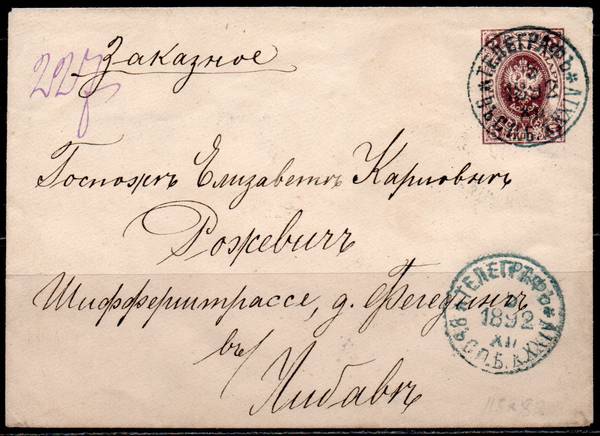 Заказное
227
Госпожѣ Елизаветѣ Карловнѣ
Рожевичъ
Шифферштрассе, д.
въ Либавѣ
ТЕЛЕГРАФЪ
1892
XII
С.П.Б.
ТЕЛЕГРАФЪ
1892
XII
С.П.Б.